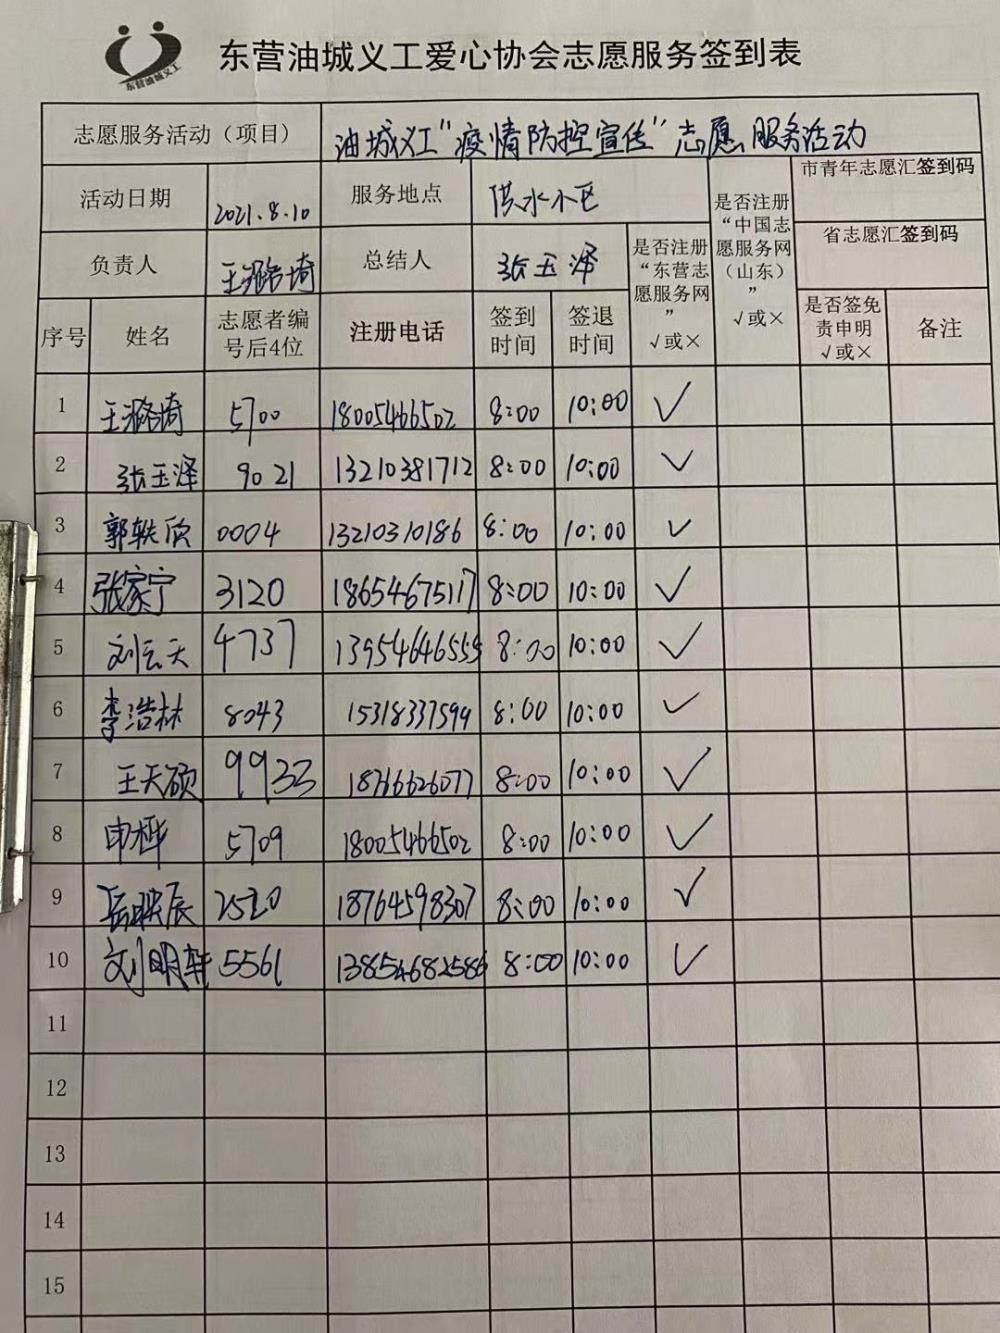 东营油城义工
东营油城义工爱心协会志愿服务签到表
志愿服务活动（项目） 油城义工“疫情防控宣传”志愿服务活动
活动日期 2021.8.10 服务地点 供水小区 是否注册“中国志愿服务网（山东）” √或× 市青年志愿汇签到码
负责人 王潞琦 总结人 张玉泽 是否注册“东营志愿服务网” √或× 省志愿汇签到码
序号 姓名 志愿者编号后4位 注册电话 签到时间 签退时间 是否签免责申明 √或× 备注
1 王潞琦 5700 18005466502 8:00 10:00 ✓
2 张玉泽 9021 13210381712 8:00 10:00 ✓
3 郭轶欣 0004 13210310186 8:00 10:00 ✓
4 张家宁 3120 18654675117 8:00 10:00 ✓
5 刘云天 4737 13954646555 8:00 10:00 ✓
6 李浩林 8043 15318337594 8:00 10:00 ✓
7 王天硕 9933 18766626077 8:00 10:00 ✓
8 申桦 5709 18005466502 8:00 10:00 ✓
9 2520 18764598307 8:00 10:00 ✓
10 刘明轩 5561 13854682586 8:00 10:00 ✓
11
12
13
14
15